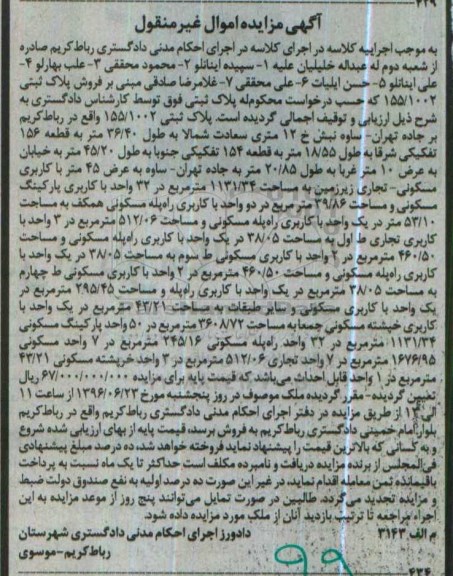 ۴۲۹
آگهی مزایده اموال غیر منقول
به موجب اجراییه کلاسه در اجرای کلاسه در اجرای احکام مدنی دادگستری رباط کریم صادره
از شعبه دوم له عبداله خلیلیان علیه ۱- سپیده اینانلو ۲- محمود محققی ۳- علب بهارلو ۴-
علی اینانلو ۵- حسن ایلیات ۶- علی محققی ۷- غلامرضا صادقی مبنی بر فروش پلاک ثبتی
۱۵۵/۱۰۰۲ که حسب درخواست محکوم‌له پلاک ثبتی فوق توسط کارشناس دادگستری به
شرح ذیل ارزیابی و توقیف اجمالی گردیده است. پلاک ثبتی ۱۵۵/۱۰۰۲ واقع در رباط کریم
بر جاده تهران- ساوه نبش خ ۱۲ متری سعادت شمالا به طول ۳۶/۴۰ متر به قطعه ۱۵۶
تفکیکی شرقا به طول ۱۸/۵۵ متر به قطعه ۱۵۴ تفکیکی جنوبا به طول ۴۵/۲۰ متر به خیابان
به عرض ۱۰ متر غربا به طول ۲۰/۸۵ متر به جاده تهران- ساوه به عرض ۴۵ متر با کاربری
مسکونی- تجاری زیرزمین به مساحت ۱۱۳۱/۳۴ مترمربع در ۳۲ واحد با کاربری پارکینگ
مسکونی و مساحت ۲۹/۸۶ متر مربع در دو واحد با کاربری راه‌پله مسکونی همکف به مساحت
۵۳/۱۰ متر در یک واحد با کاربری راه‌پله مسکونی و مساحت ۵۱۲/۰۶ مترمربع در ۳ واحد با
کاربری تجاری ط اول به مساحت ۳۸/۰۵ در یک واحد با کاربری راه‌پله مسکونی و مساحت
۴۶۰/۵۰ مترمربع در ۲ واحد با کاربری مسکونی ط سوم به مساحت ۳۸/۰۵ در یک واحد با
کاربری راه‌پله مسکونی و مساحت ۴۶۰/۵۰ مترمربع در ۲ واحد با کاربری مسکونی ط چهارم
به مساحت ۳۸/۰۵ مترمربع در یک واحد با کاربری راه‌پله و مساحت ۲۹۵/۴۵ مترمربع در
یک واحد با کاربری مسکونی و سایر طبقات به مساحت ۴۳/۲۱ مترمربع در یک واحد با
کاربری خپشته مسکونی جمعا به مساحت ۳۶۰۸/۷۲ مترمربع در ۵۰ واحد پارکینگ مسکونی
۱۱۳۱/۳۴ مترمربع در ۳۲ واحد راه‌پله مسکونی ۲۴۵/۱۶ مترمربع در ۷ واحد مسکونی
۱۶۷۶/۹۵ مترمربع در ۷ واحد تجاری ۵۱۲/۰۶ مترمربع در ۳ واحد خرپشته مسکونی ۴۳/۲۱
مترمربع در ۱ واحد قابل احداث می‌باشد که قیمت پایه برای مزایده ۶۷/۰۰۰/۰۰۰/۰۰۰ ریال
تعیین گردیده- مقرر گردیده ملک موصوف در روز پنجشنبه مورخ ۱۳۹۶/۰۶/۲۳ از ساعت ۱۱
الی ۱۳ از طریق مزایده در دفتر اجرای احکام مدنی دادگستری رباط کریم واقع در رباط کریم
بلوار امام خمینی دادگستری رباط کریم به فروش برسد، قیمت پایه از بهای ارزیابی شده شروع
و به کسانی که بالاترین قیمت را پیشنهاد نماید فروخته خواهد شد، ده درصد مبلغ پیشنهادی
فی‌المجلس از برنده مزایده دریافت و نامبرده مکلف است حداکثر تا یک ماه نسبت به پرداخت
باقیمانده ثمن معامله اقدام نماید، در غیر این صورت ده درصد اولیه به نفع صندوق دولت ضبط
و مزایده تجدید می‌گردد. طالبین در صورت تمایل می‌توانند پنج روز از موعد مزایده به این
اجرا، مراجعه تا ترتیب بازدید آنان از ملک مورد مزایده داده شود.
م الف ۳۱۴۳ دادورز اجرای احکام مدنی دادگستری شهرستان
رباط کریم- موسوی
۹۹
۴۳۴